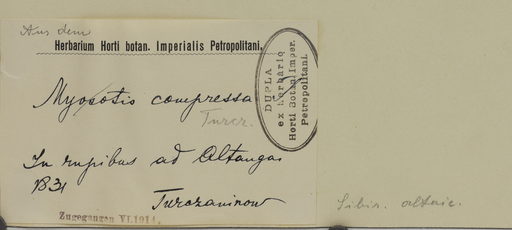 Aus dem
Herbarium Horti botan. Imperialis Petropolitani.
DUPLA
ex herbario
Horti Botan. Imper.
Petropolitani.
Myosotis compressa
Turcz.
In rupibus ad Altangai
1831
Turczaninow
Zugegangen VI.1914.
Sibir. altaic.